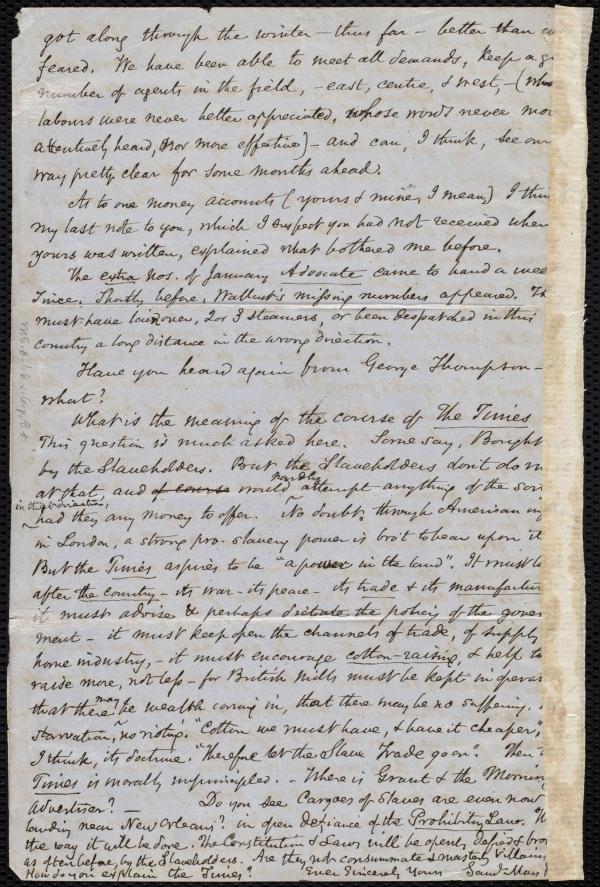 got along through the winter – thus far – better than
feared. We have been able to meet all demands, keep a
number of agents in the field, – east, centre, & west, – (
labours were never better appreciated, whose words never
attentively heard, nor more effective) – and can, I think, see our
way pretty clear for some months ahead.
As to one money accounts (yours & mine, I mean) I
my last note to you, which I suspect you had not received when
yours was written, explained what bothered me before.
The extra nos. of January Advocate came to hand a
since. Shortly before, Wallcut's missing numbers appeared.
must have lain over, 2 or 3 steamers, or been despatched in this
country a long distance in the wrong direction.
Have you heard again from George Thompson –
what?
What is the meaning of the course of The Times
This question is much asked here. Some say, Bought
by the Slaveholders. But the Slaveholders don't do
at that, and of course would hardly attempt anything of the
in that direction,
had they any money to offer. No doubt, through American
in London, a strong pro-slavery power is bro't to bear upon it
But the Times aspires to be "a power in the land". It must
after the country – its war – its peace – its trade & its
it must advise & perhaps dictate the policy of the
ment – it must keep open the channels of trade, of supply,
home industry, – it must encourage cotton-raising, & help to
raise more, not less – for British Mills must be kept in
that there may be wealth coming in, that there may be no suffering,
starvation, no rioting. "Cotton we must have, & have it cheaper",
I think, its doctrine. "Therefore let the Slave Trade go on". Then
Times is morally unprincipled. – Where is Grant & the Morning
Advertiser? – Do you see Cargoes of Slaves are even now
landing near New Orleans? in open defiance of the Prohibitory Laws.
the way it will be done. The Constitution & Laws will be openly defied &
as often before, by the Slaveholders. Are they not consummate & masterly Villains
How do you explain the Times? Ever Sincerely Yours Saml May